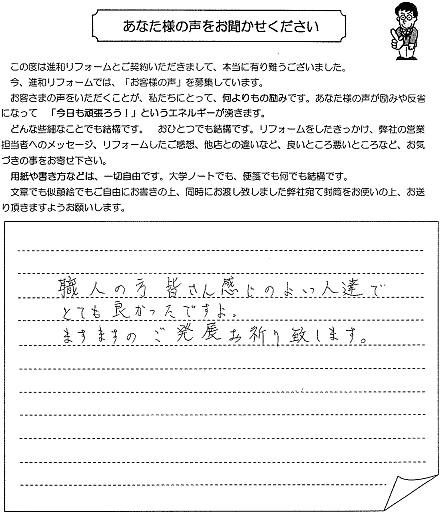 あなた様の声をお聞かせください
この度は進和リフォームとご契約いただきまして、本当に有り難うございました。
今、進和リフォームでは、「お客様の声」を募集しています。
お客さまの声をいただくことが、私たちにとって、何よりもの励みです。あなた様の声が励みや反省
になって 「今日も頑張ろう！」というエネルギーが湧きます。
どんな些細なことでも結構です。 おひとつでも結構です。リフォームをしたきっかけ、弊社の営業
担当者へのメッセージ、リフォームしたご感想、他店との違いなど、良いところ悪いところなど、お気
づきの事をお寄せ下さい。
用紙や書き方などは、一切自由です。大学ノートでも、便箋でも何でも結構です。
文章でも似顔絵でもご自由にお書きの上、同時にお渡し致しました弊社宛て封筒をお使いの上、お送
り頂きますようお願いします。
職人の方 皆さん感じのよい人達で
とても良かったですよ。
ますますの ご発展お祈り致します。